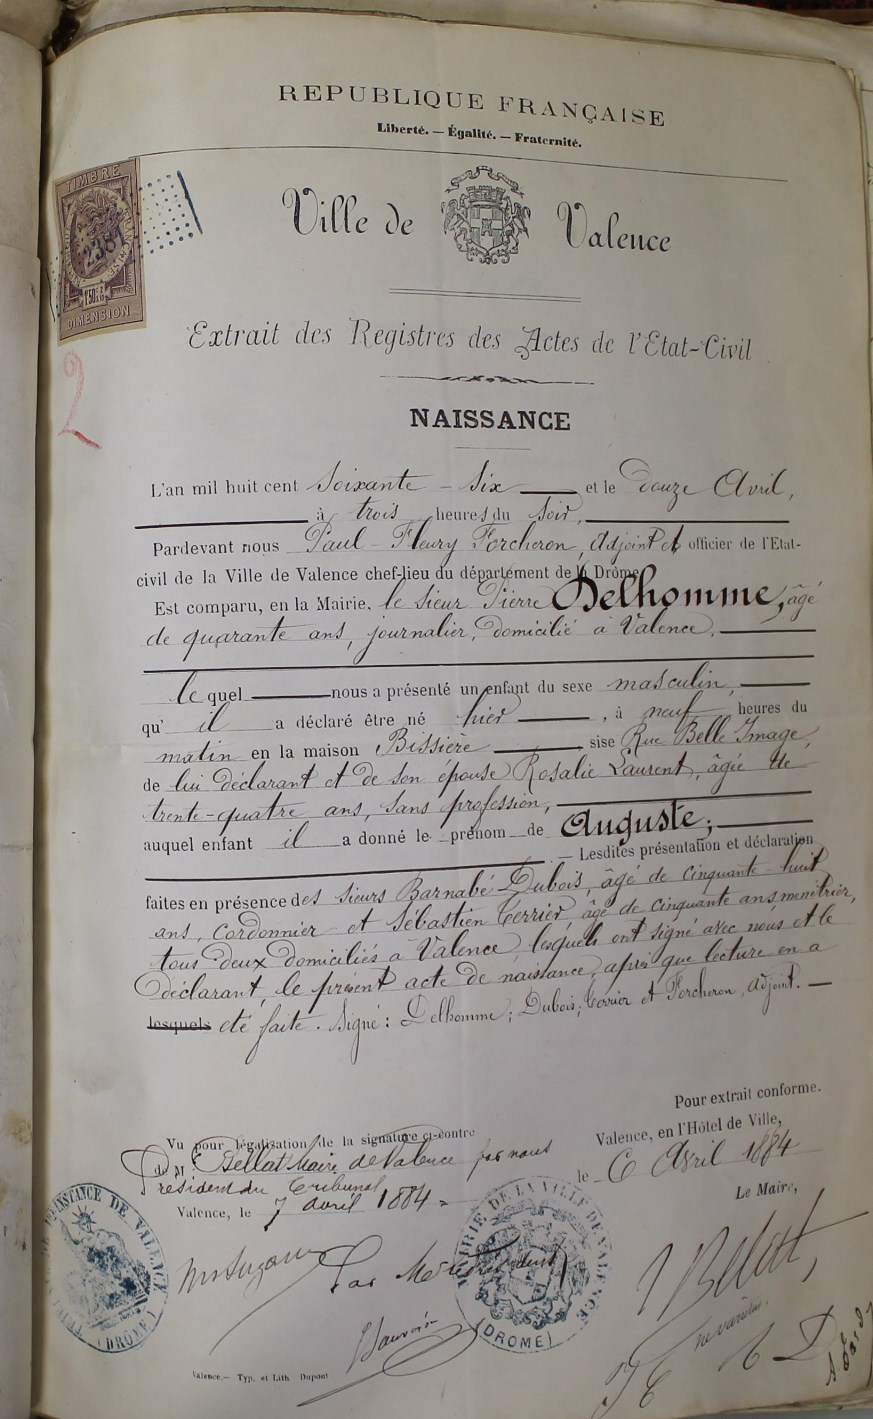 REPUBLIQUE FRANÇAISE
Liberté. — Égalité. — Fraternité.
TIMBRE
2381
DIMENSION
Ville de Valence
Extrait des Registres des Actes de l'Etat-Civil
2
NAISSANCE
L'an mil huit cent Soixante - Six et le Douze Avril,
à trois heures du Soir,
Pardevant nous Paul-Fleury Forcheron, Adjoint et officier de l'Etat-
civil de la Ville de Valence chef-lieu du département de la Drôme
Est comparu, en la Mairie, le sieur Pierre Delhomme, âgé
de quarante ans, journalier, domicilié à Valence,
lequel nous a présenté un enfant du sexe masculin,
qu'il a déclaré être né hier, à neuf heures du
matin en la maison Bissière sise Rue Belle Image,
de lui déclarant et de son épouse Rosalie Laurent, âgée de
trente-quatre ans, sans profession,
auquel enfant il a donné le prénom de Auguste;
— Lesdites présentation et déclaration
faites en présence des sieurs Barnabé Dubois, âgé de cinquante-huit
ans, cordonnier et Sébastien Terrier, âgé de cinquante ans menétrier,
tous deux domiciliés à Valence, lesquels ont signé avec nous et le
déclarant, le présent acte de naissance, après que lecture en a
lesquels été faite. Signé: Delhomme; Dubois; Terrier et Forcheron, adjoint. —
Pour extrait conforme.
Vu pour légalisation de la signature ci-contre
Valence, en l'Hôtel de Ville,
de M Bellat Maire de Valence par nous
le 6 Avril 1884
Président du Tribunal
Le Maire,
Valence, le 7 avril 1884
INSTANCE DE VALENCE
(DRÔME)
MAIRIE DE LA VILLE DE VALENCE
(DROME)
Par
Bellat
Valence.— Typ. et Lith Dupont